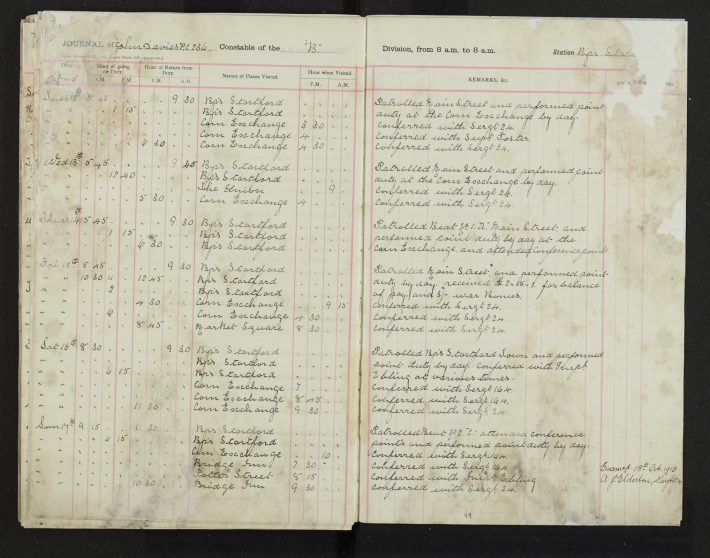 JOURNAL of John Davies P.C. 236. Constable of the "B" Division, from 8 a.m. to 8 a.m. Station Bps Stort
Date. Hour of going on Duty. Hour of Return from Duty. Names of Places Visited. Hour when Visited. REMARKS, &c.
A.M. P.M. P.M. A.M. P.M. A.M.
Oct 1915
Tues 12th 5 45 9 30 Bps Stortford Patrolled Main Street and performed point
1 15 Bps Stortford duty at the Corn Exchange by day.
Corn Exchange 3 30 Conferred with Sergt 24.
Corn Exchange 4 Conferred with Supt Foster
6 30 Corn Exchange 4 30 Conferred with Sergt 24.
Wed 13th 5 45 9 45 Bps Stortford Patrolled Main Street and performed point
12 40 Bps Stortford duty at the Corn Exchange by day.
The 9 Conferred with Sergt 24.
5 30 Corn Exchange 4 Conferred with Sergt 24.
Thurs 14 5 45 9 30 Bps Stortford Patrolled Beat No 1. "A" Main Street, and
1 15 Bps Stortford performed point duty by day at the
6 30 Bps Stortford Corn Exchange, and attended Conference point
Fri 15th 5 45 9 30 Bps Stortford Patrolled Main Street and performed point
10 30 12 45 Bps Stortford duty by day. received for balance
2 Bps Stortford of pay, and War Bonus.
4 30 Corn Exchange 9 15 Conferred with Sergt 24.
6 Corn Exchange 4 30 Conferred with Sergt 24.
8 45 Market Square 8 30 Conferred with Sergt 24.
Sat 16th 8 30 9 30 Bps Stortford Patrolled Bps Stortford Town and performed
Bps Stortford point duty by day conferred with Insp
4 15 Bps Stortford at various times.
Corn Exchange 7 Conferred with Sergt 164
Corn Exchange 8 45 Conferred with Sergt 164.
11 30 Corn Exchange 9 30 Conferred with Sergt 24.
Sun 17th 9 15 1 30 Bps Stortford Patrolled Beat No 2 "C" attended conference
6 15 Bps Stortford points and performed point duty by day.
Corn Exchange 10 Conferred with Sergt 164.
Bridge Inn 7 30 Conferred with Sergt 164.
Potter Street 8 15 Conferred with Insp
10 30 Bridge Inn 9 30 Conferred with Sergt 24.
Exam'd 18th Oct. 1915
A. J. Elderton, Sergt